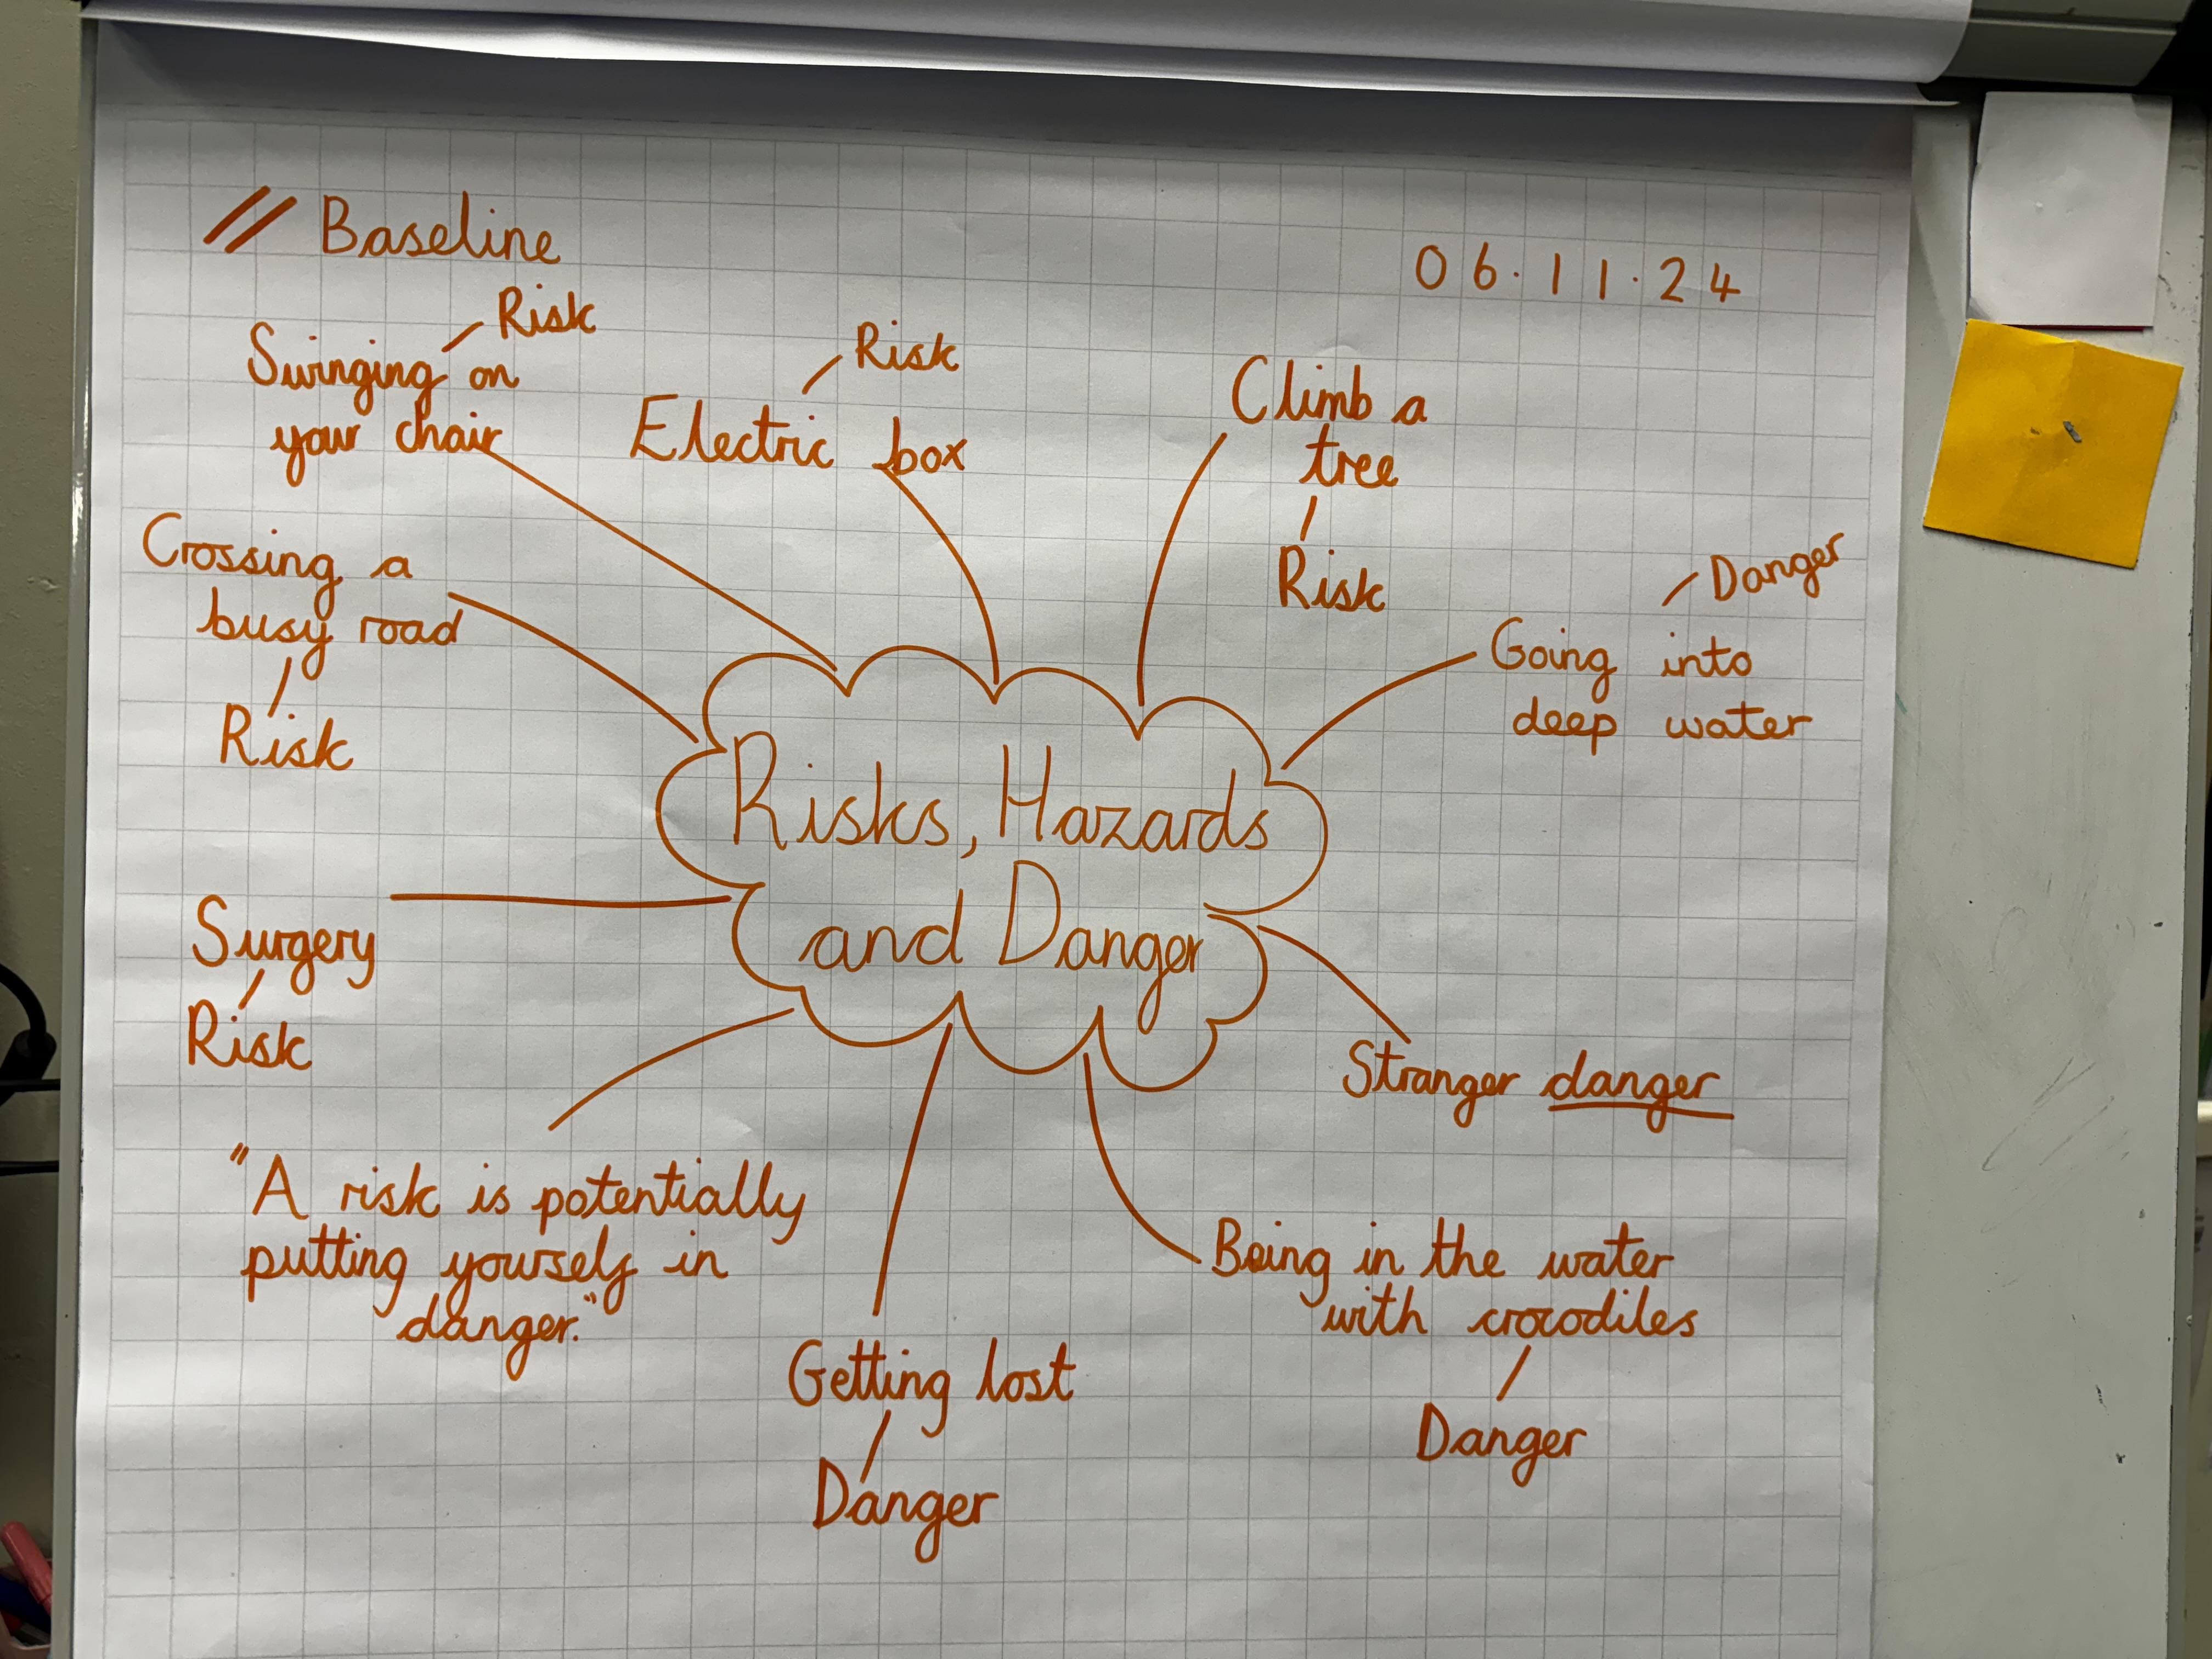 // Baseline
06.11.24
Risk
Swinging on
your chair
Risk
Electric box
Climb a
tree
Risk
Danger
Going into
deep water
Crossing a
busy road
Risk
Risks, Hazards
and Danger
Surgery
Risk
Stranger danger
"A risk is potentially
putting yourself in
danger."
Getting lost
Danger
Being in the water
with crocodiles
Danger